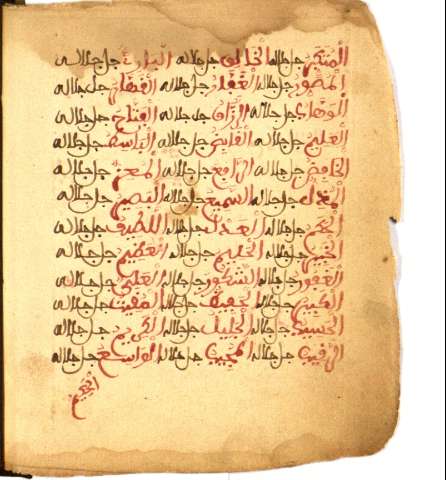 المتكبر جل جلاله الخالق جل جلاله البارئ جل جلاله
المصور جل جلاله الغفار جل جلاله القهار جل جلاله
الوهاب جل جلاله الرزاق جل جلاله الفتاح جل جلاله
العليم جل جلاله القابض جل جلاله الباسط جل جلاله
الخافض جل جلاله الرافع جل جلاله المعز جل جلاله
المذل جل جلاله السميع جل جلاله البصير جل جلاله
الحكم جل جلاله العدل جل جلاله اللطيف جل جلاله
الخبير جل جلاله الحليم جل جلاله العظيم جل جلاله
الغفور جل جلاله الشكور جل جلاله العلي جل جلاله
الكبير جل جلاله الحفيظ جل جلاله المقيت جل جلاله
الحسيب جل جلاله الجليل جل جلاله الكريم جل جلاله
الرقيب جل جلاله المجيب جل جلاله الواسع جل جلاله
الحكيم